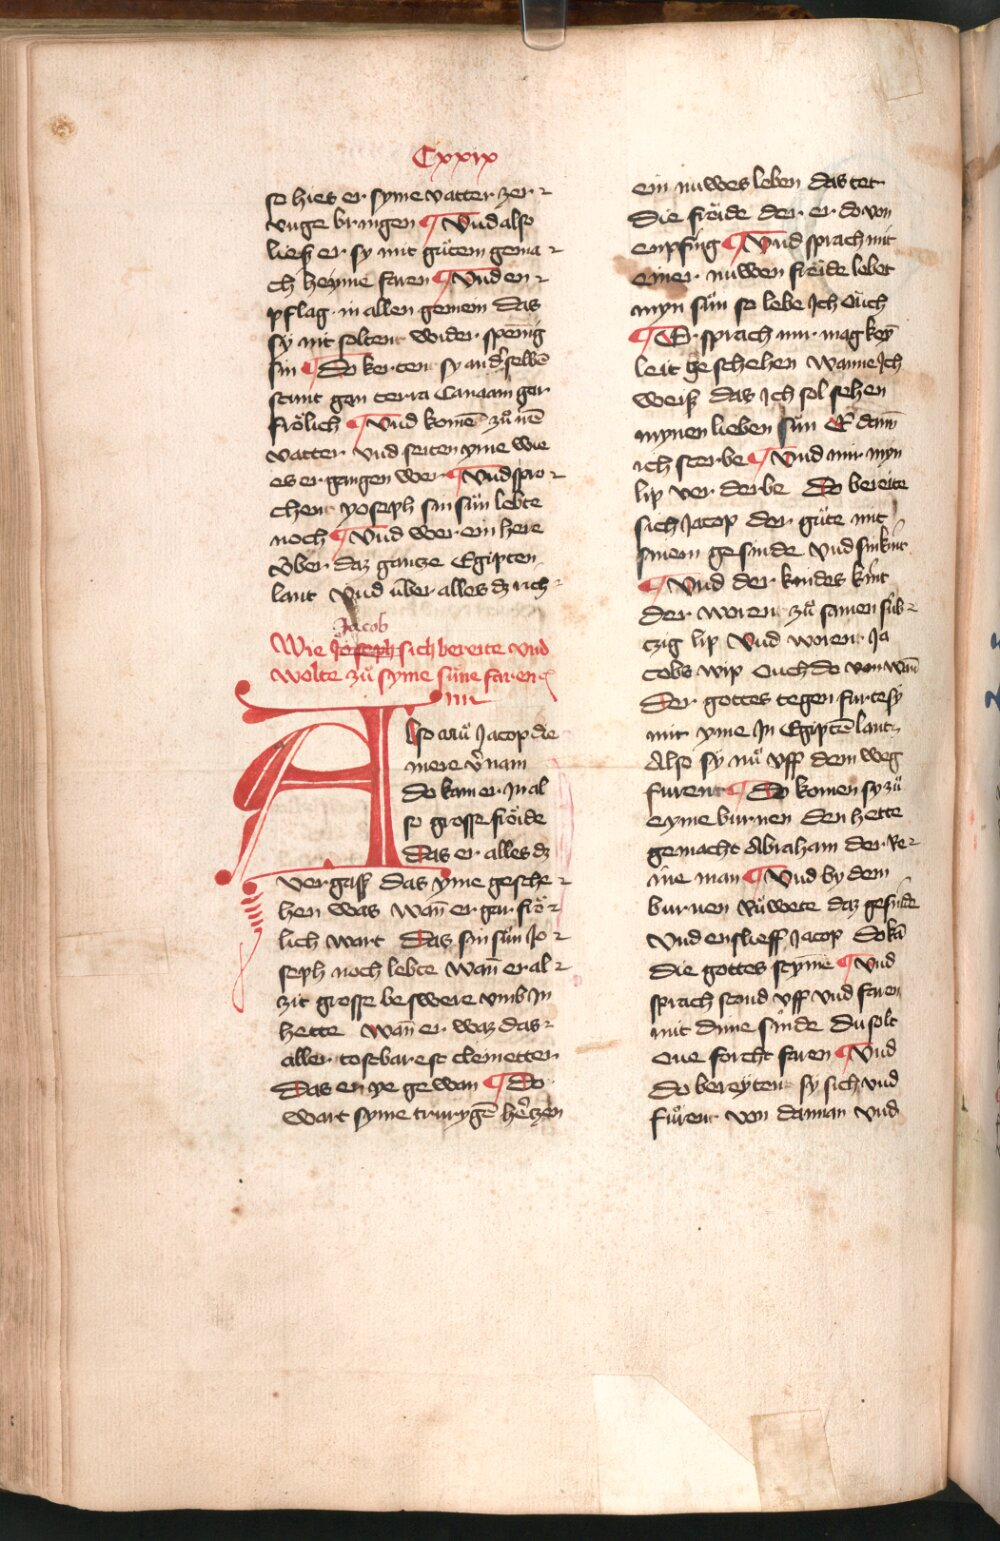 Cxxix
so hies er syme vatter zer⸗
unge bringen ¶ Und also
ließ er sy mit gůtem gema⸗
ch heyme faren ¶ Und en⸗
pflag in allen gemein das
sy nit soltent wider spenig
sin ¶ Do kertent sy an d͛ selbē
stunt gan terra Canaam gar
frölich ¶ Und komē zů irē
vatter Und seiten yme wie
es er gangen wer ¶ Und spro⸗
chent yoseph sin sůn lebte
noch ¶ Und wer ein here
Über daz gantze Egipten
lant Und über alles dz rich⸗
Jacob
Wie Joseph sich bereite und
wolte zů syme süne faren
Also nů Jacop die
mere v͛nam
do kam er In al
so grosse fröide
Das er alles dz
vergaß das yme gesche⸗
hen was wan̄ er gar frö⸗
lich wart Das sin sůn Jo⸗
seph noch lebte wan̄ er al⸗
zit grosse beswere umb In
hette wan̄ er waz das⸗
aller costbarest cleinetter
Das er ye gewan ¶ Do
wart syme trurygē hertzen
ein nuwes leben das tet
Die fröide der er do von
enpfing ¶ Und sprach mit
einer nuwen fröide lebet
myn sůn so lebe Ich ouch
¶ Er sprach mir mag keȳ
leit geschehen wanne Ich
weiß das Ich sol sehen
mynen lieben sůn E dann̄
ich sterbe ¶ Und mir myn
lip ver derbe Do bereite
sich Jacop der gůte mit
sinem gesinde Und sin kint
¶ Und der kindes kint
der worent zů samen sůb⸗
tzig lip Und worent Ja
cobs wip Ouch do von wan̄
Der gottes tegen furte sy
mit yme In Egiptē lant
Also sy nů uff dem weg
furent ¶ Do komen sy zů
eyme burnen den hette
gemacht Abraham der Re⸗
ine man ¶ Und by dem
burnen růwete daz gesinde
Und enslieff Jacop Do kā
die gottes stymē ¶ Und
sprach stond uff und faren
mit dime sinde Du solt
One forcht faren ¶ Und
Do bereytent sy sich und
fůrent von dannan Und